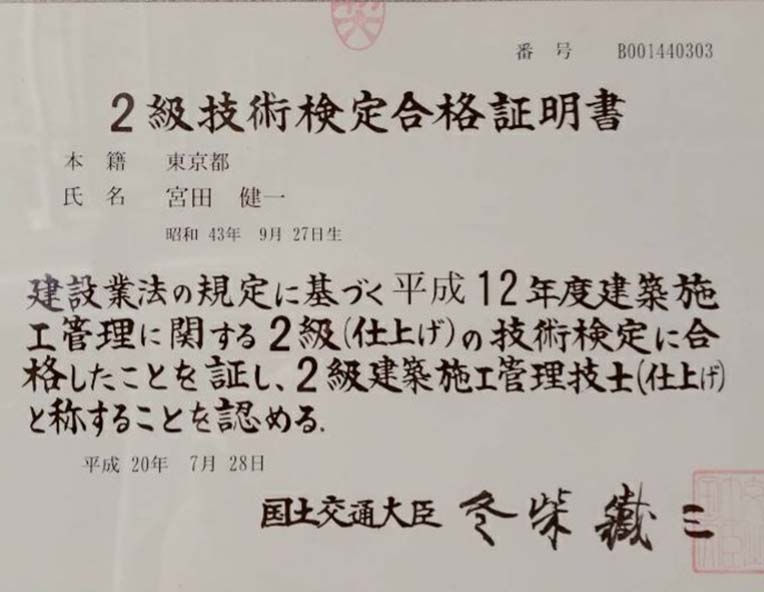 番号 B001440303
2級技術検定合格証明書
本籍 東京都
氏名 宮田 健一
昭和 43年 9月 27日生
建設業法の規定に基づく平成12年度建築施
工管理に関する2級(仕上げ)の技術検定に合
格したことを証し、2級建築施工管理技士(仕上げ)
と称することを認める.
平成 20年 7月 28日
国土交通大臣 冬柴 鐵三